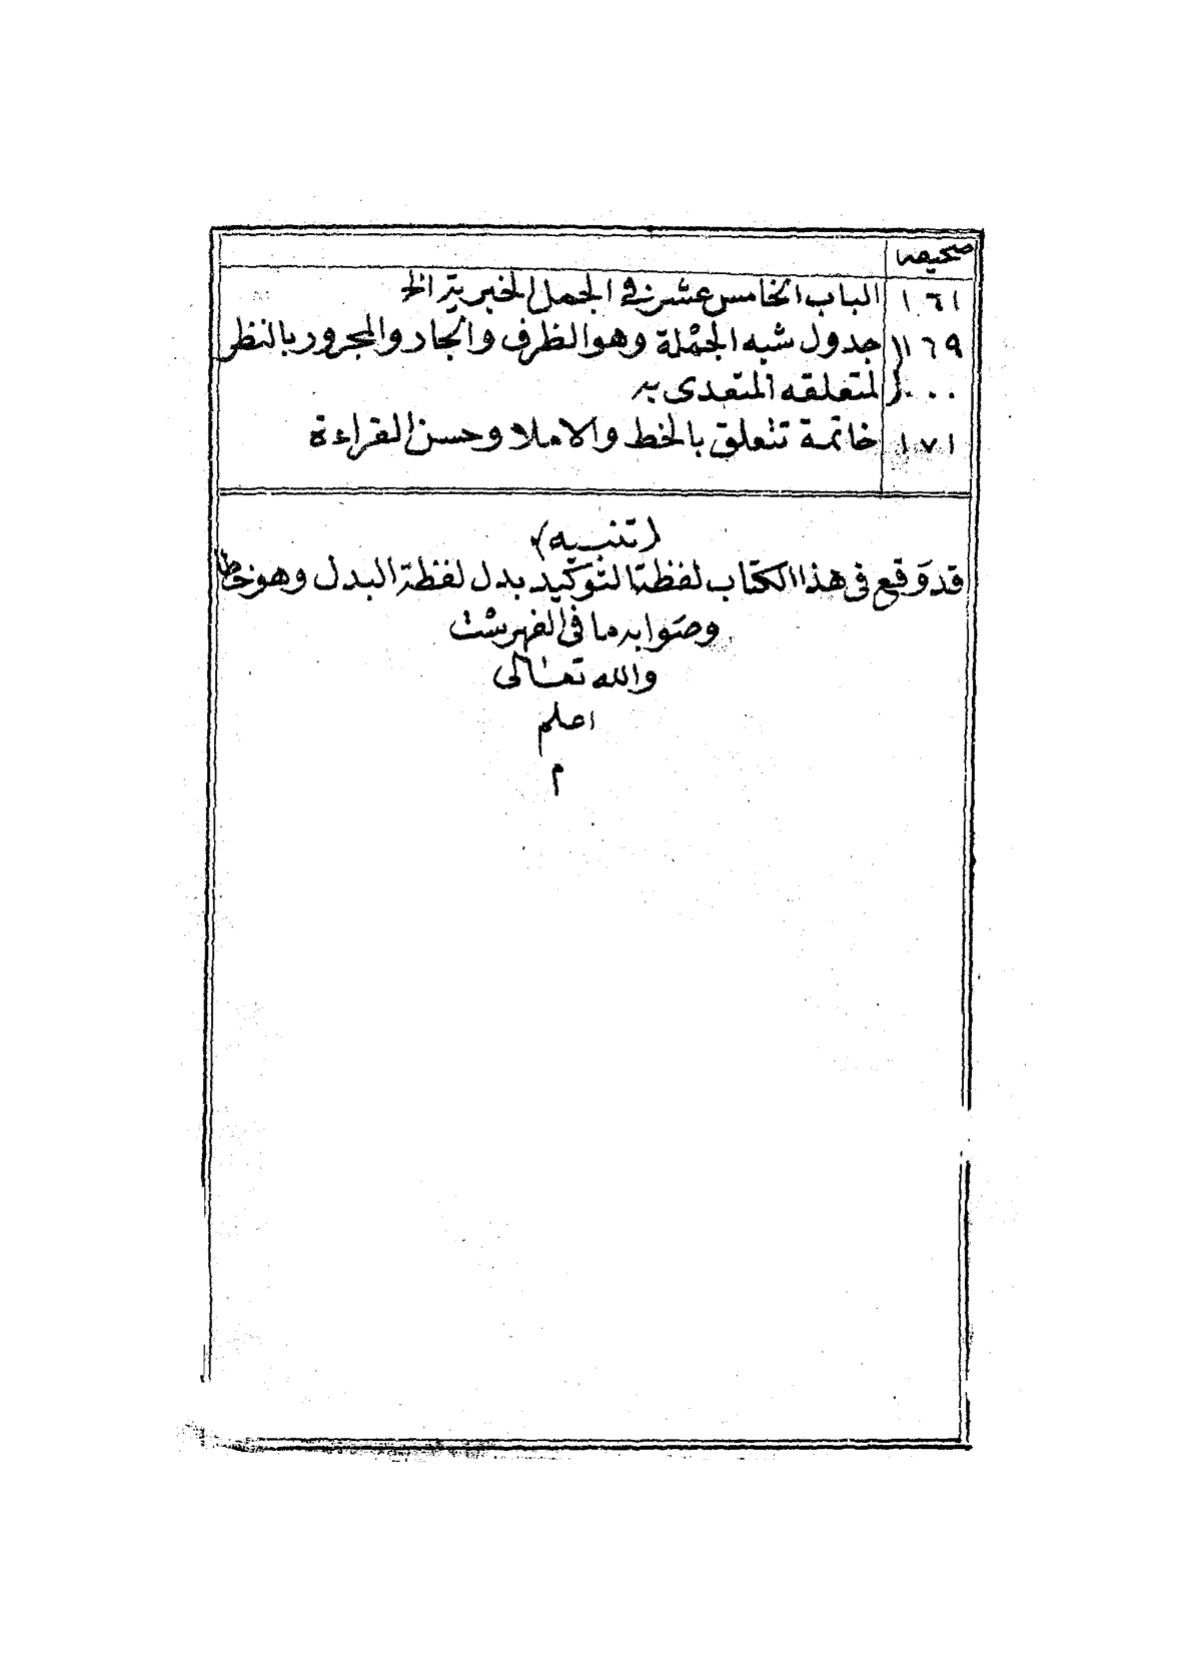 صحيفه
١٦١ الباب الخامس عشر في الجمل الخبرية الخ
١٦٩ جدول شبه الجملة وهو الظرف والجار والمجرور بالنظر
٠٠٠ لمتعلقه المتعدى به
١٧١ خاتمة تتعلق بالخط والاملا وحسن القراءة
(تنبيه)
قد وقع في هذا الكتاب لفظة التوكيد بدل لفظة البدل وهو خطا
وصوابه ما في الفهرست
والله تعالى
اعلم
م